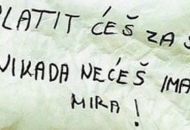 PLATIT ĆEŠ ZA S
NIKADA NEĆEŠ IMA
MIRA!